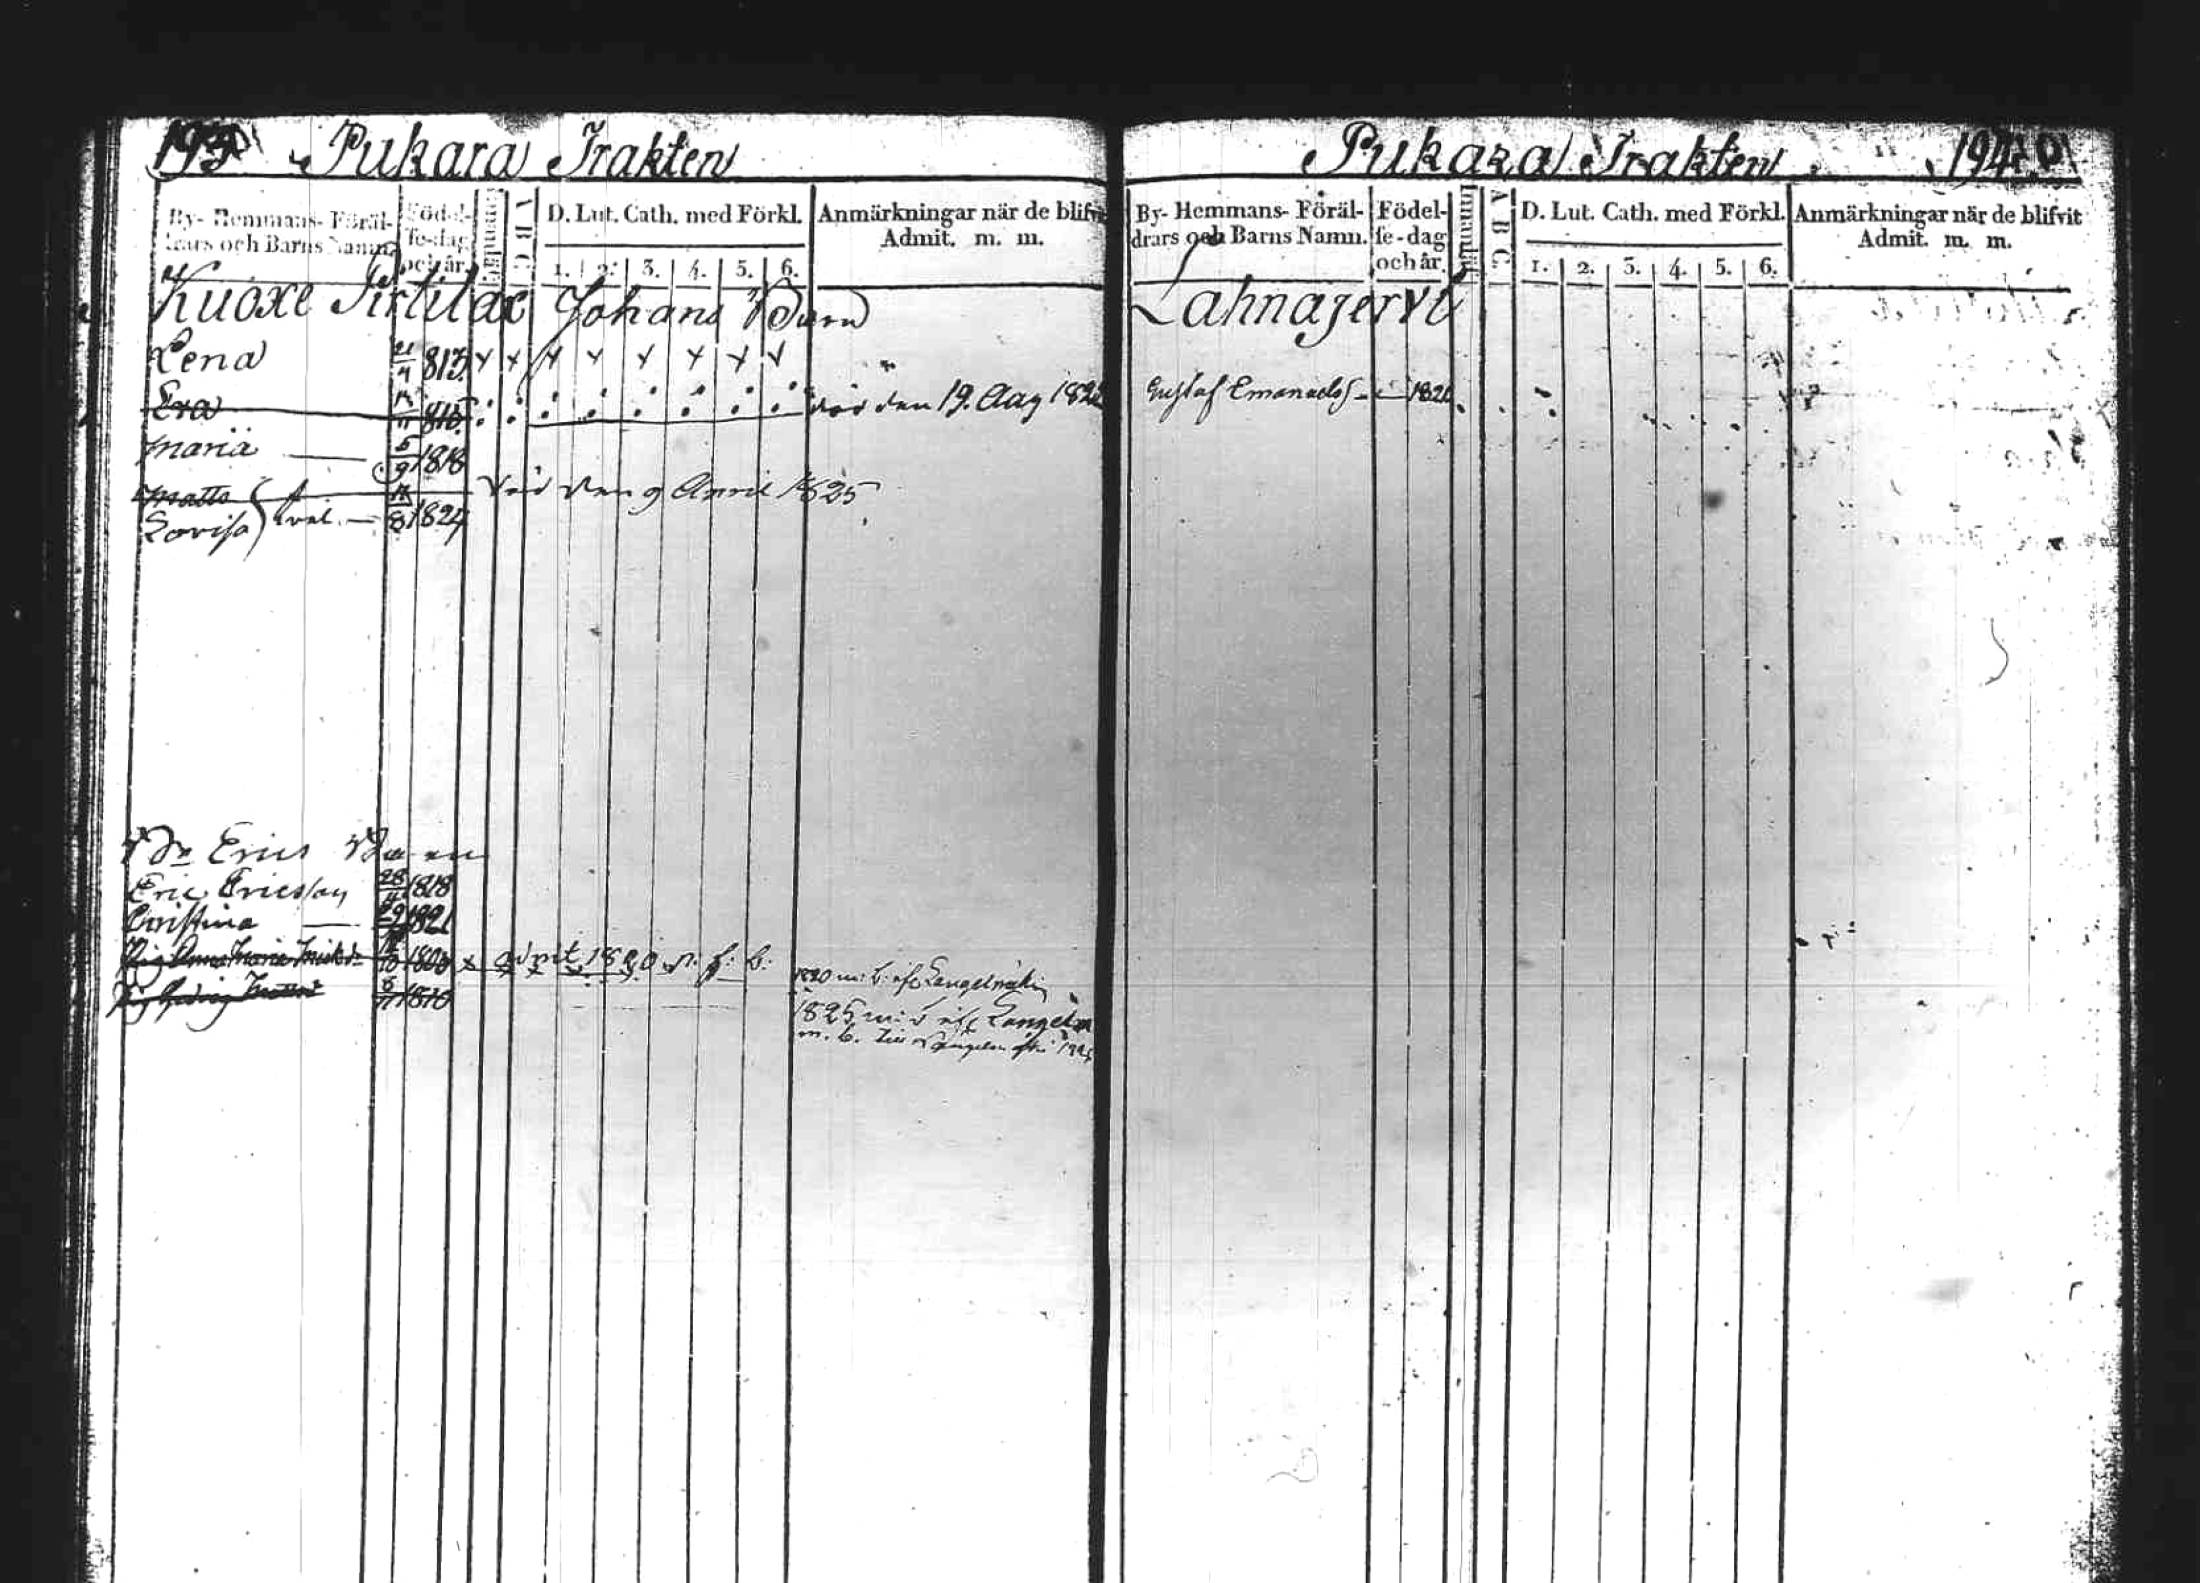 193 Pukara Trakten
By- Hemmans- Föräl-
drars och Barns Namn.
Födel-
se-dag
och år.
Innanläs
A B C
D. Lut. Cath. med Förkl.
1. 2. 3. 4. 5. 6.
Anmärkningar när de blifvit
Admit. m. m.
Kuoxe Pirtilax Johans Barn
Lena 21/4 813 x x x x x x x x
Eva 815 död den 19. Aug
Maria — 5/9 1818
Matts död den 9 April 1825
Lovisa 1824
Erics
Eric Ericsson 28 1818
Christina — 1821
Pig Anna Maria admit 1820 n. f. b.
1820 m: b: Längelmäki
Pig Hedvig 1810
1825
m. b.
Pukara Trakten 194
By- Hemmans- Föräl-
drars och Barns Namn.
Födel-
se-dag
och år.
Innanläs
A B C
D. Lut. Cath. med Förkl.
1. 2. 3. 4. 5. 6.
Anmärkningar när de blifvit
Admit. m. m.
Lahnajervi
Gustaf Emanuels